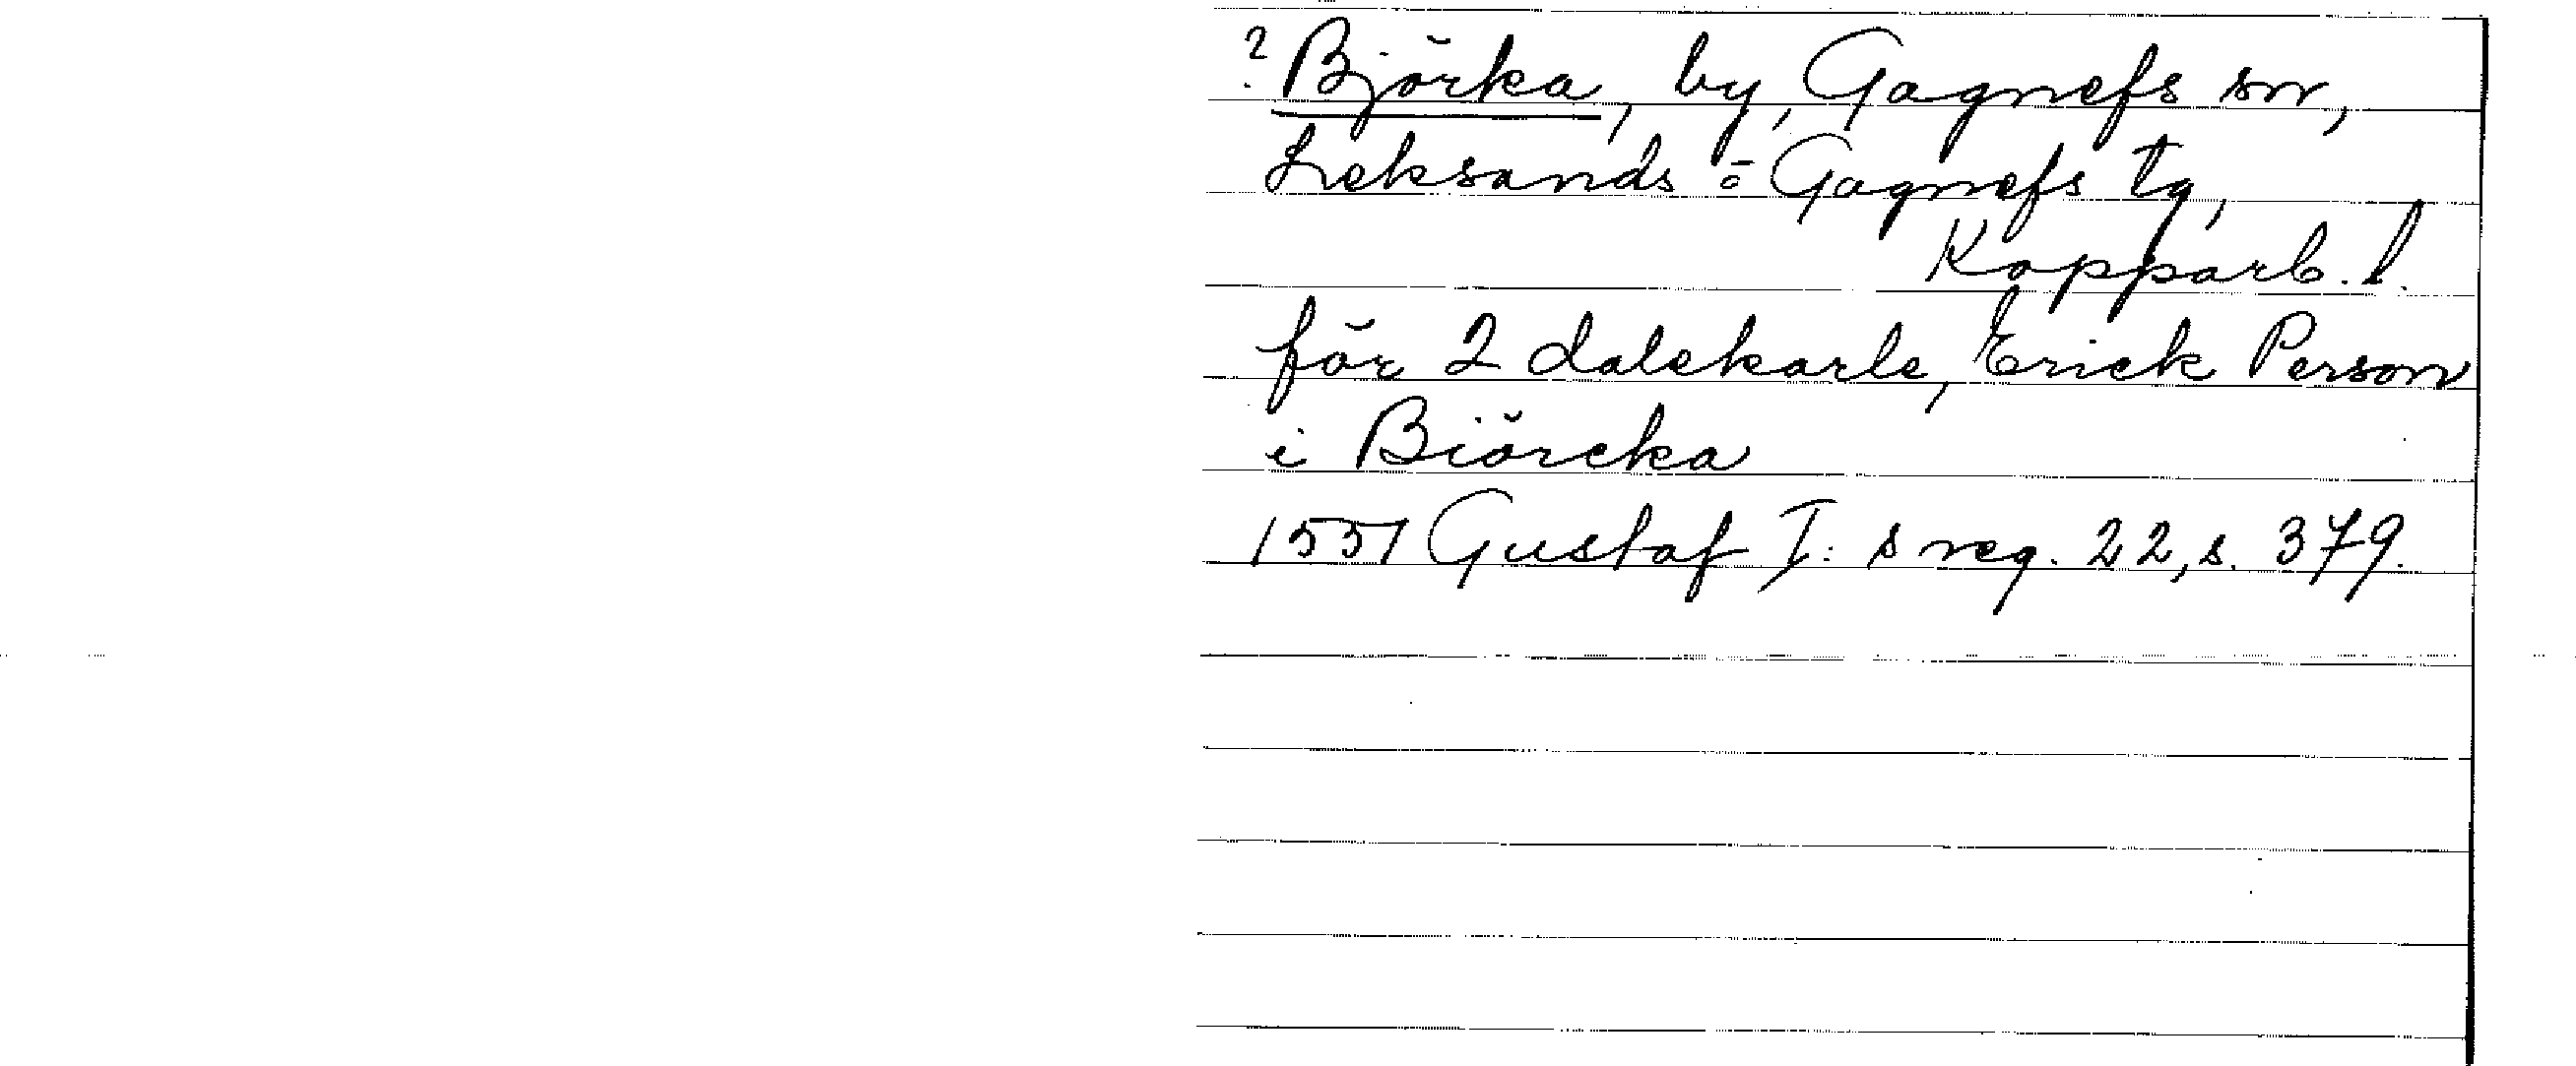 ? Björka, by, Gagnefs sn,
Leksands o Gagnefs tg,
Kopparb. l.
för 2 dalekarle, Erick Person
i Biörcka
1551 Gustaf I: s reg. 22, s. 379.